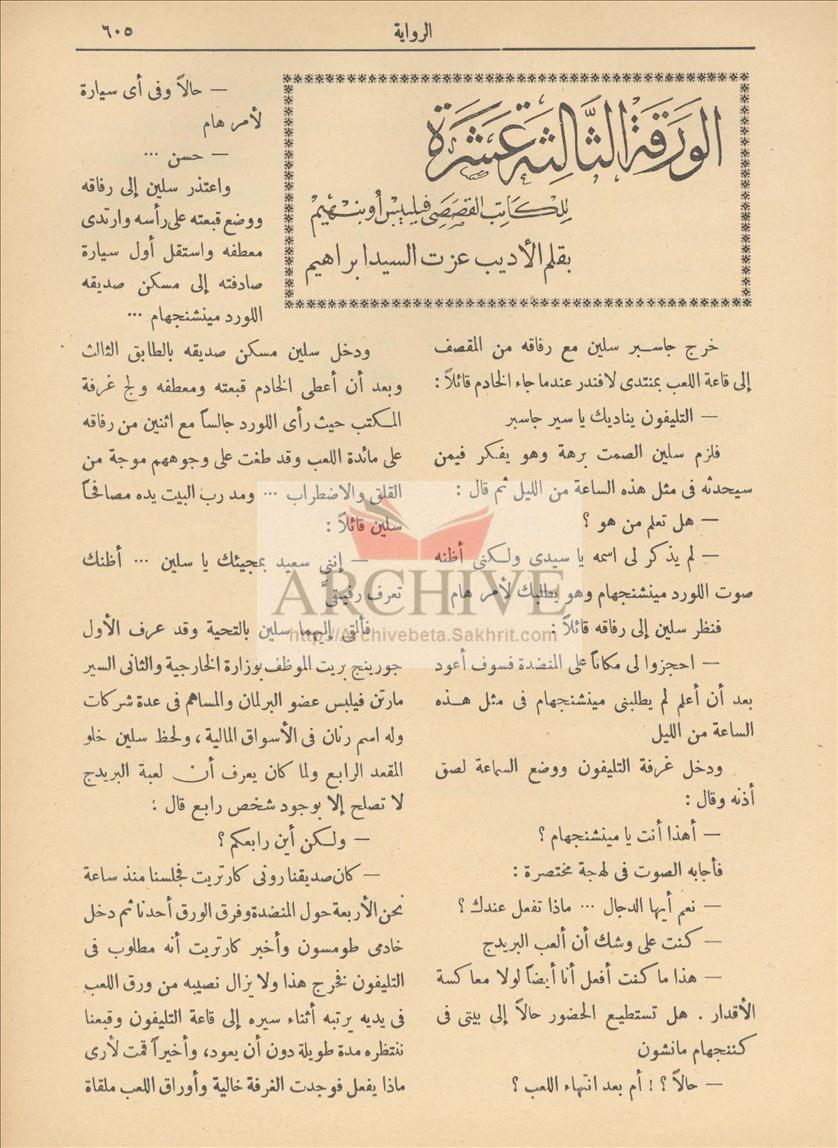 الرواية
٦٠٥
الورقة الثالثة عشرة
للكاتب القصصي فيليبس أوبنهيم
بقلم الأديب عزت السيد ابراهيم
خرج جاسبر سلين مع رفاقه من المقصف
إلى قاعة اللعب بمنتدى لافندر عندما جاء الخادم قائلاً :
— التليفون يناديك يا سير جاسبر
فلزم سلين الصمت برهة وهو يفكر فيمن
سيحدثه فى مثل هذه الساعة من الليل ثم قال :
— هل تعلم من هو ؟
— لم يذكر لى اسمه يا سيدى ولكنى أظنه
صوت اللورد مينشنجهام وهو يطلبك لأمر هام
فنظر سلين إلى رفاقه قائلاً :
— احجزوا لى مكاناً على المنضدة فسوف أعود
بعد أن أعلم لم يطلبنى مينشنجهام فى مثل هذه
الساعة من الليل
ودخل غرفة التليفون ووضع السماعة لصق
أذنه وقال :
— أهذا أنت يا مينشنجهام ؟
فأجابه الصوت فى لهجة مختصرة :
— نعم أيها الدجال ... ماذا تفعل عندك ؟
— كنت على وشك أن ألعب البريدج
— هذا ما كنت أفعل أنا أيضاً لولا معاكسة
الأقدار . هل تستطيع الحضور حالاً إلى بيتى فى
كننجهام مانشون
— حالاً ؟ ! أم بعد انتهاء اللعب ؟
— حالاً وفى أى سيارة
لأمر هام
— حسن ...
واعتذر سلين إلى رفاقه
ووضع قبعته على رأسه وارتدى
معطفه واستقل أول سيارة
صادفته إلى مسكن صديقه
اللورد مينشنجهام ...
ودخل سلين مسكن صديقه بالطابق الثالث
وبعد أن أعطى الخادم قبعته ومعطفه ولج غرفة
المكتب حيث رأى اللورد جالساً مع اثنين من رفاقه
على مائدة اللعب وقد طغت على وجوههم موجة من
القلق والاضطراب ... ومد رب البيت يده مصافحاً
سلين قائلاً :
— إننى سعيد بمجيئك يا سلين ... أظنك
تعرف رفيقىَّ
فألقى إليهما سلين بالتحية وقد عرف الأول
جورينج بريت الموظف بوزارة الخارجية والثانى السير
مارتن فيلبس عضو البرلمان والمساهم فى عدة شركات
وله اسم رنان فى الأسواق المالية ، ولحظ سلين خلو
المقعد الرابع ولما كان يعرف أن لعبة البريدج
لا تصلح إلا بوجود شخص رابع قال :
— ولكن أين رابعكم ؟
— كان صديقنا رونى كارتريت فجلسنا منذ ساعة
نحن الأربعة حول المنضدة وفرق الورق أحدنا ثم دخل
خادمى طومسون وأخبر كارتريت أنه مطلوب فى
التليفون فخرج هذا ولا يزال نصيبه من ورق اللعب
فى يديه يرتبه أثناء سيره إلى قاعة التليفون وقبعنا
ننتظره مدة طويلة دون أن يعود، وأخيراً قمت لأرى
ماذا يفعل فوجدت الغرفة خالية وأوراق اللعب ملقاة
ARCHIVE
http://Archivebeta.Sakhrit.com